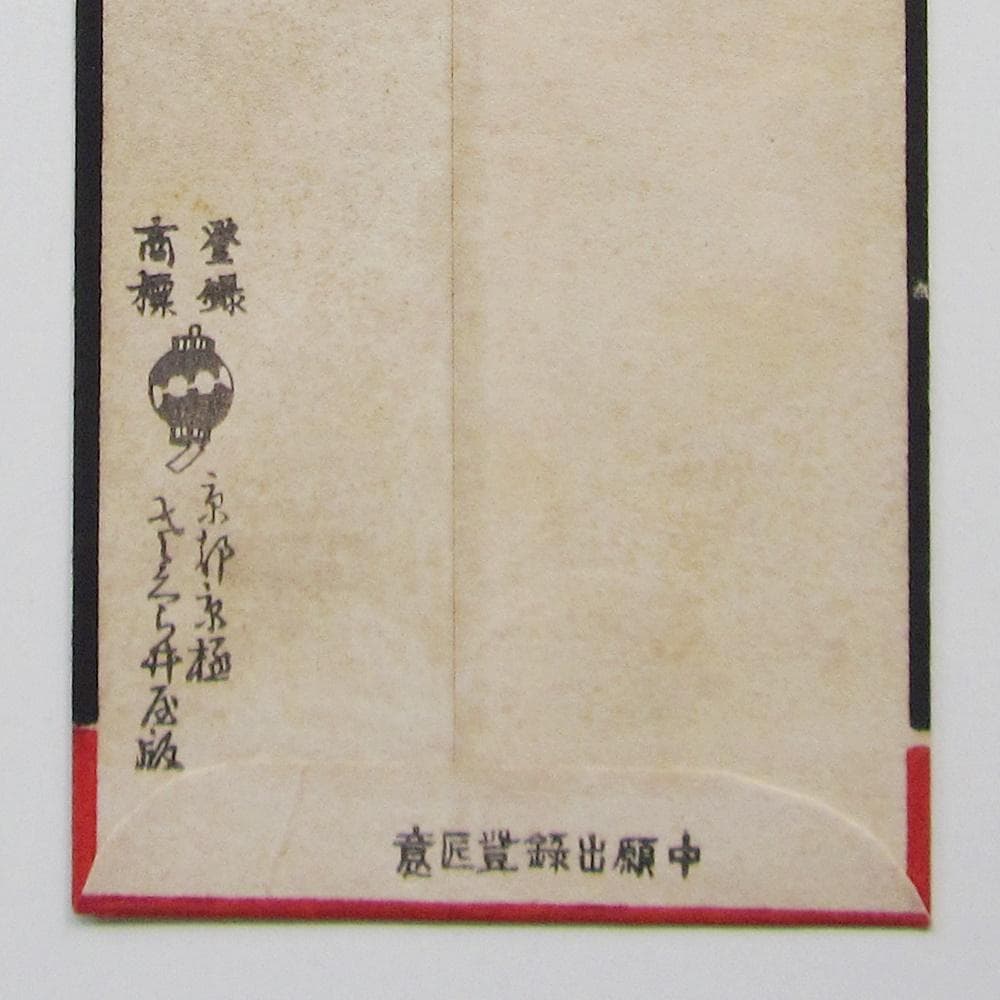 登録
商標
京都京極
さくら井屋版
意匠登録出願中